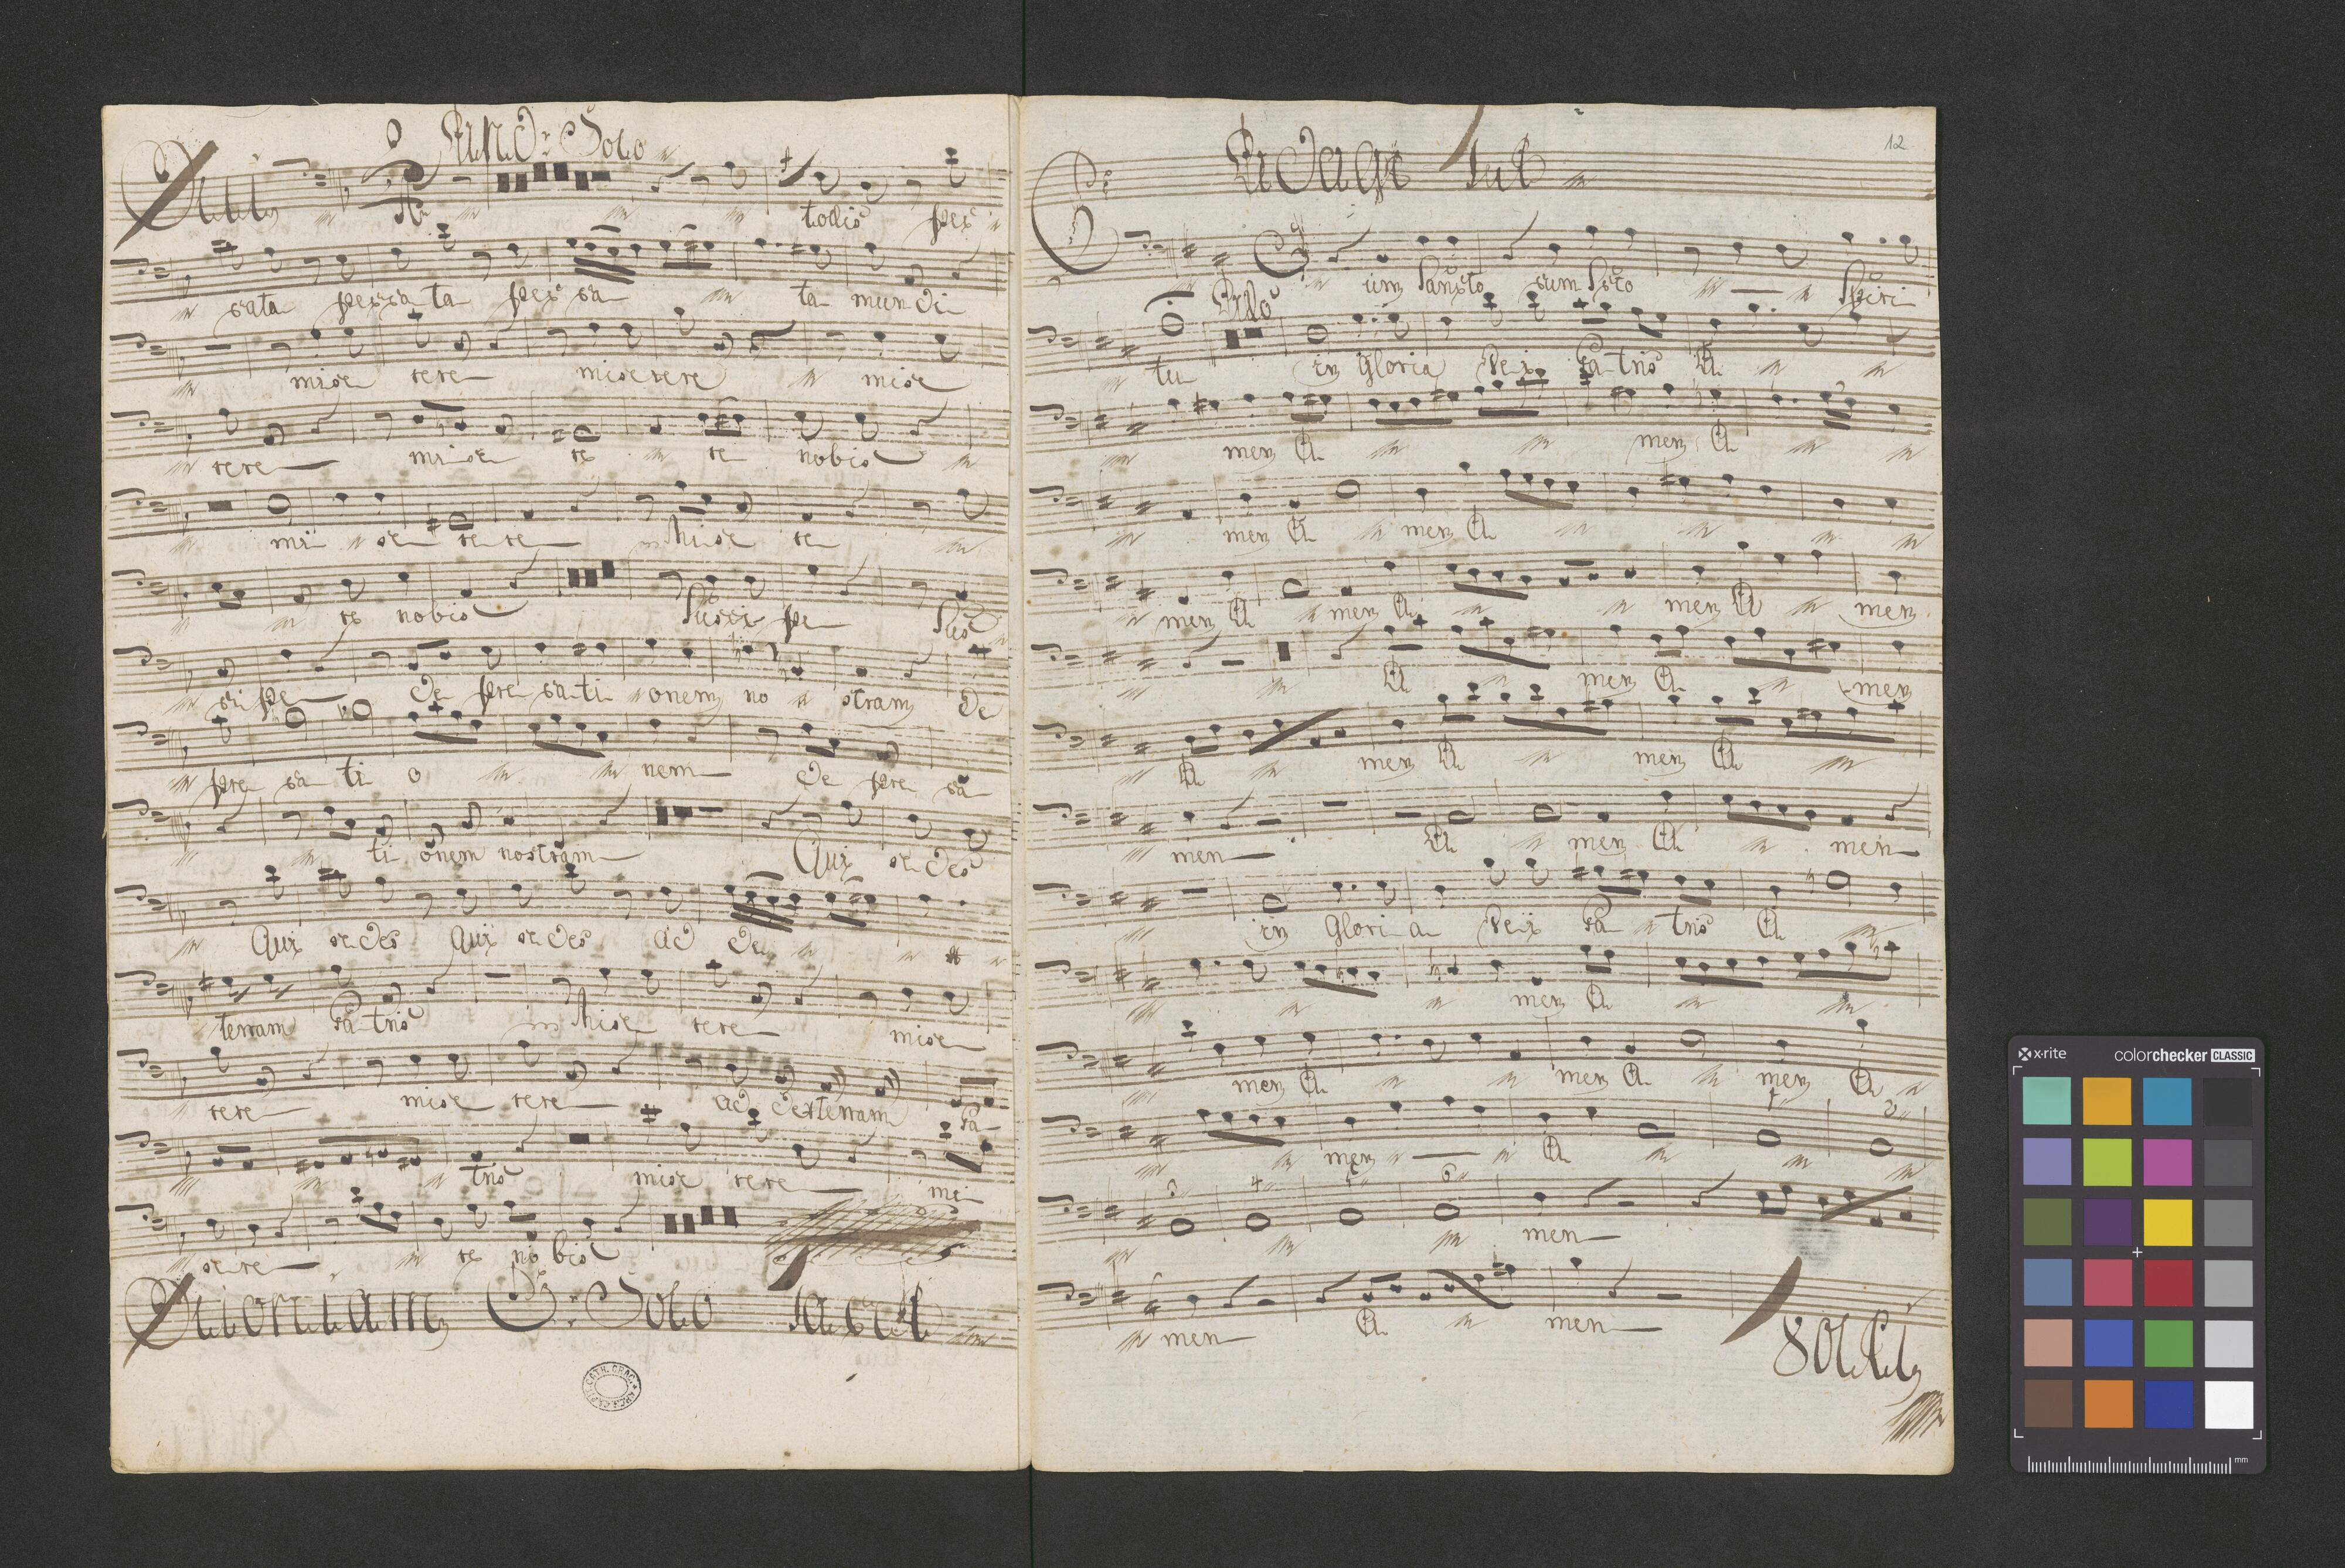 And: Solo
Qui tollis pec
cata peccata pecca ta mundi
mise rere miserere mise
rere mise re re nobis
mi se rere mise re
re nobis Susci pe Sus
ci pe de pre cati onem no stram de
pre ca ti o nem de pre ca
ti onem nostram Qui se des
Qui se des Qui se des ad de x
teram Pa tris mise rere mise
rere mise rere ad dexteram Pa
tris mise rere mi
se re re no bis
Quoniam C: Solo Tacet
12
Adagi
Cum Sancto cum Scto Spiri
Allo
tu in Gloria Dei Pa tris A
men A men A
men A men A
men A men A men A men
A men A men
A men A men A
men A men A men
in Gloria Dei Pa tris A
men A
men A men A men A
men A
2
3 4 5 6
men
men A men
x-rite
colorchecker CLASSIC
mm